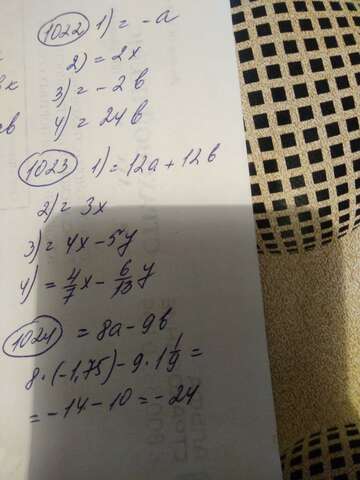 1022 1) = -a
2) = 2x
3) = -2b
4) = 24b
1023 1) = 12a + 12b
2) = 3x
3) = 4x - 5y
4) = 4/7 x - 6/13 y
1024 = 8a - 9b
8 · (-1,75) - 9 · 1 1/9 =
= -14 - 10 = -24